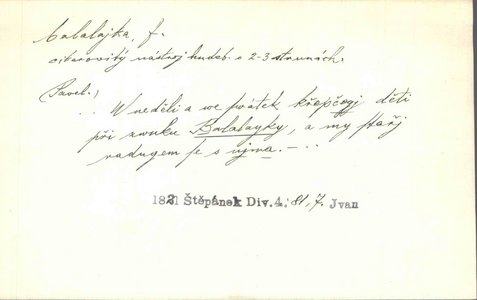 balalajka, f.
citarovitý nástroj hudeb. o 2-3 strunách.
(Pavel.)
. . W neděli a we swátek křepčegj děti
při zwuku Balalayky, a my stařj
radugem se s
1821 Štěpánek Div. 4. 81, 7. Jvan